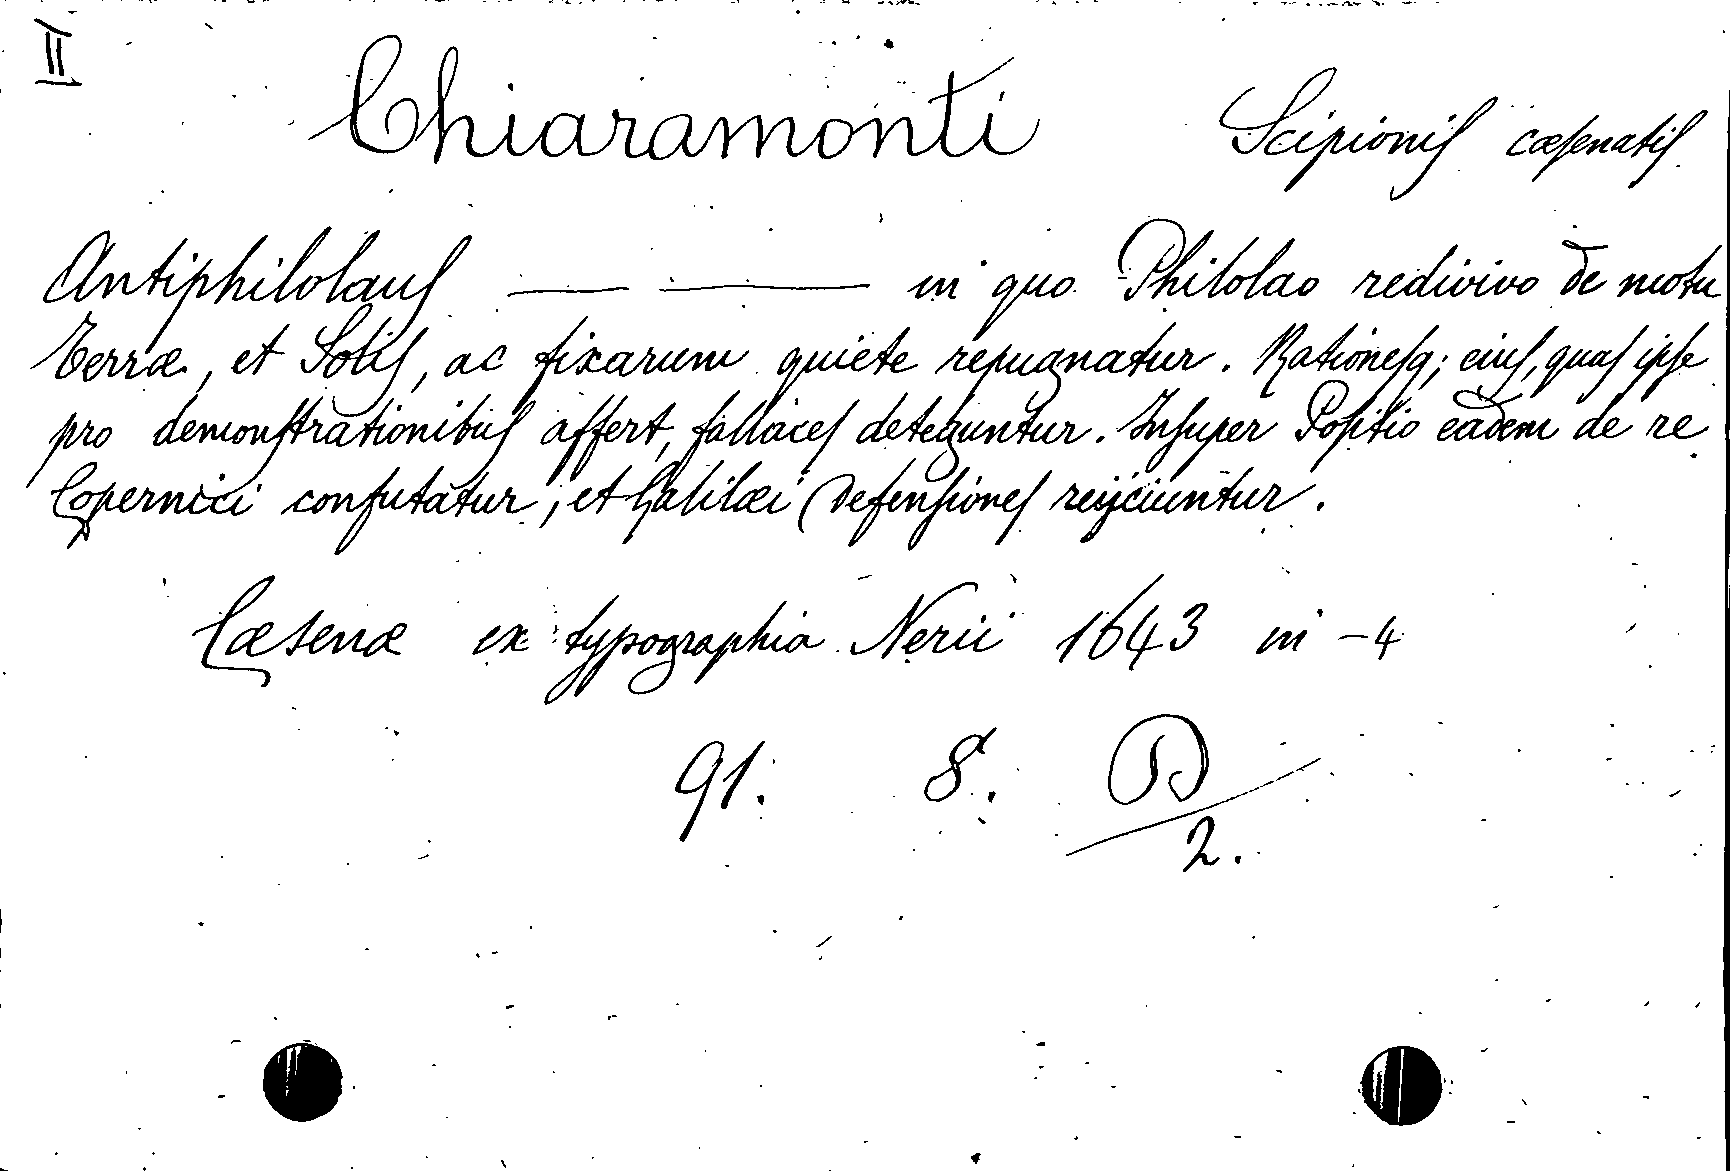 II
Chiaramonti Scipionis cæsenatis
Antiphilolaus —— ——— in quo Philolao redivivo de motu
terræ, et Solis, ac fixarum quiete repugnatur. Rationesq; eius, quas ipse
pro demonstrationibus affert, fallaces deteguntur. Insuper Positio eadem de re
Copernici confutatur, et Galilæi Defensiones reijciuntur.
Cæsenæ ex typographia Nerii 1643 in -4
91. 8. D
2.